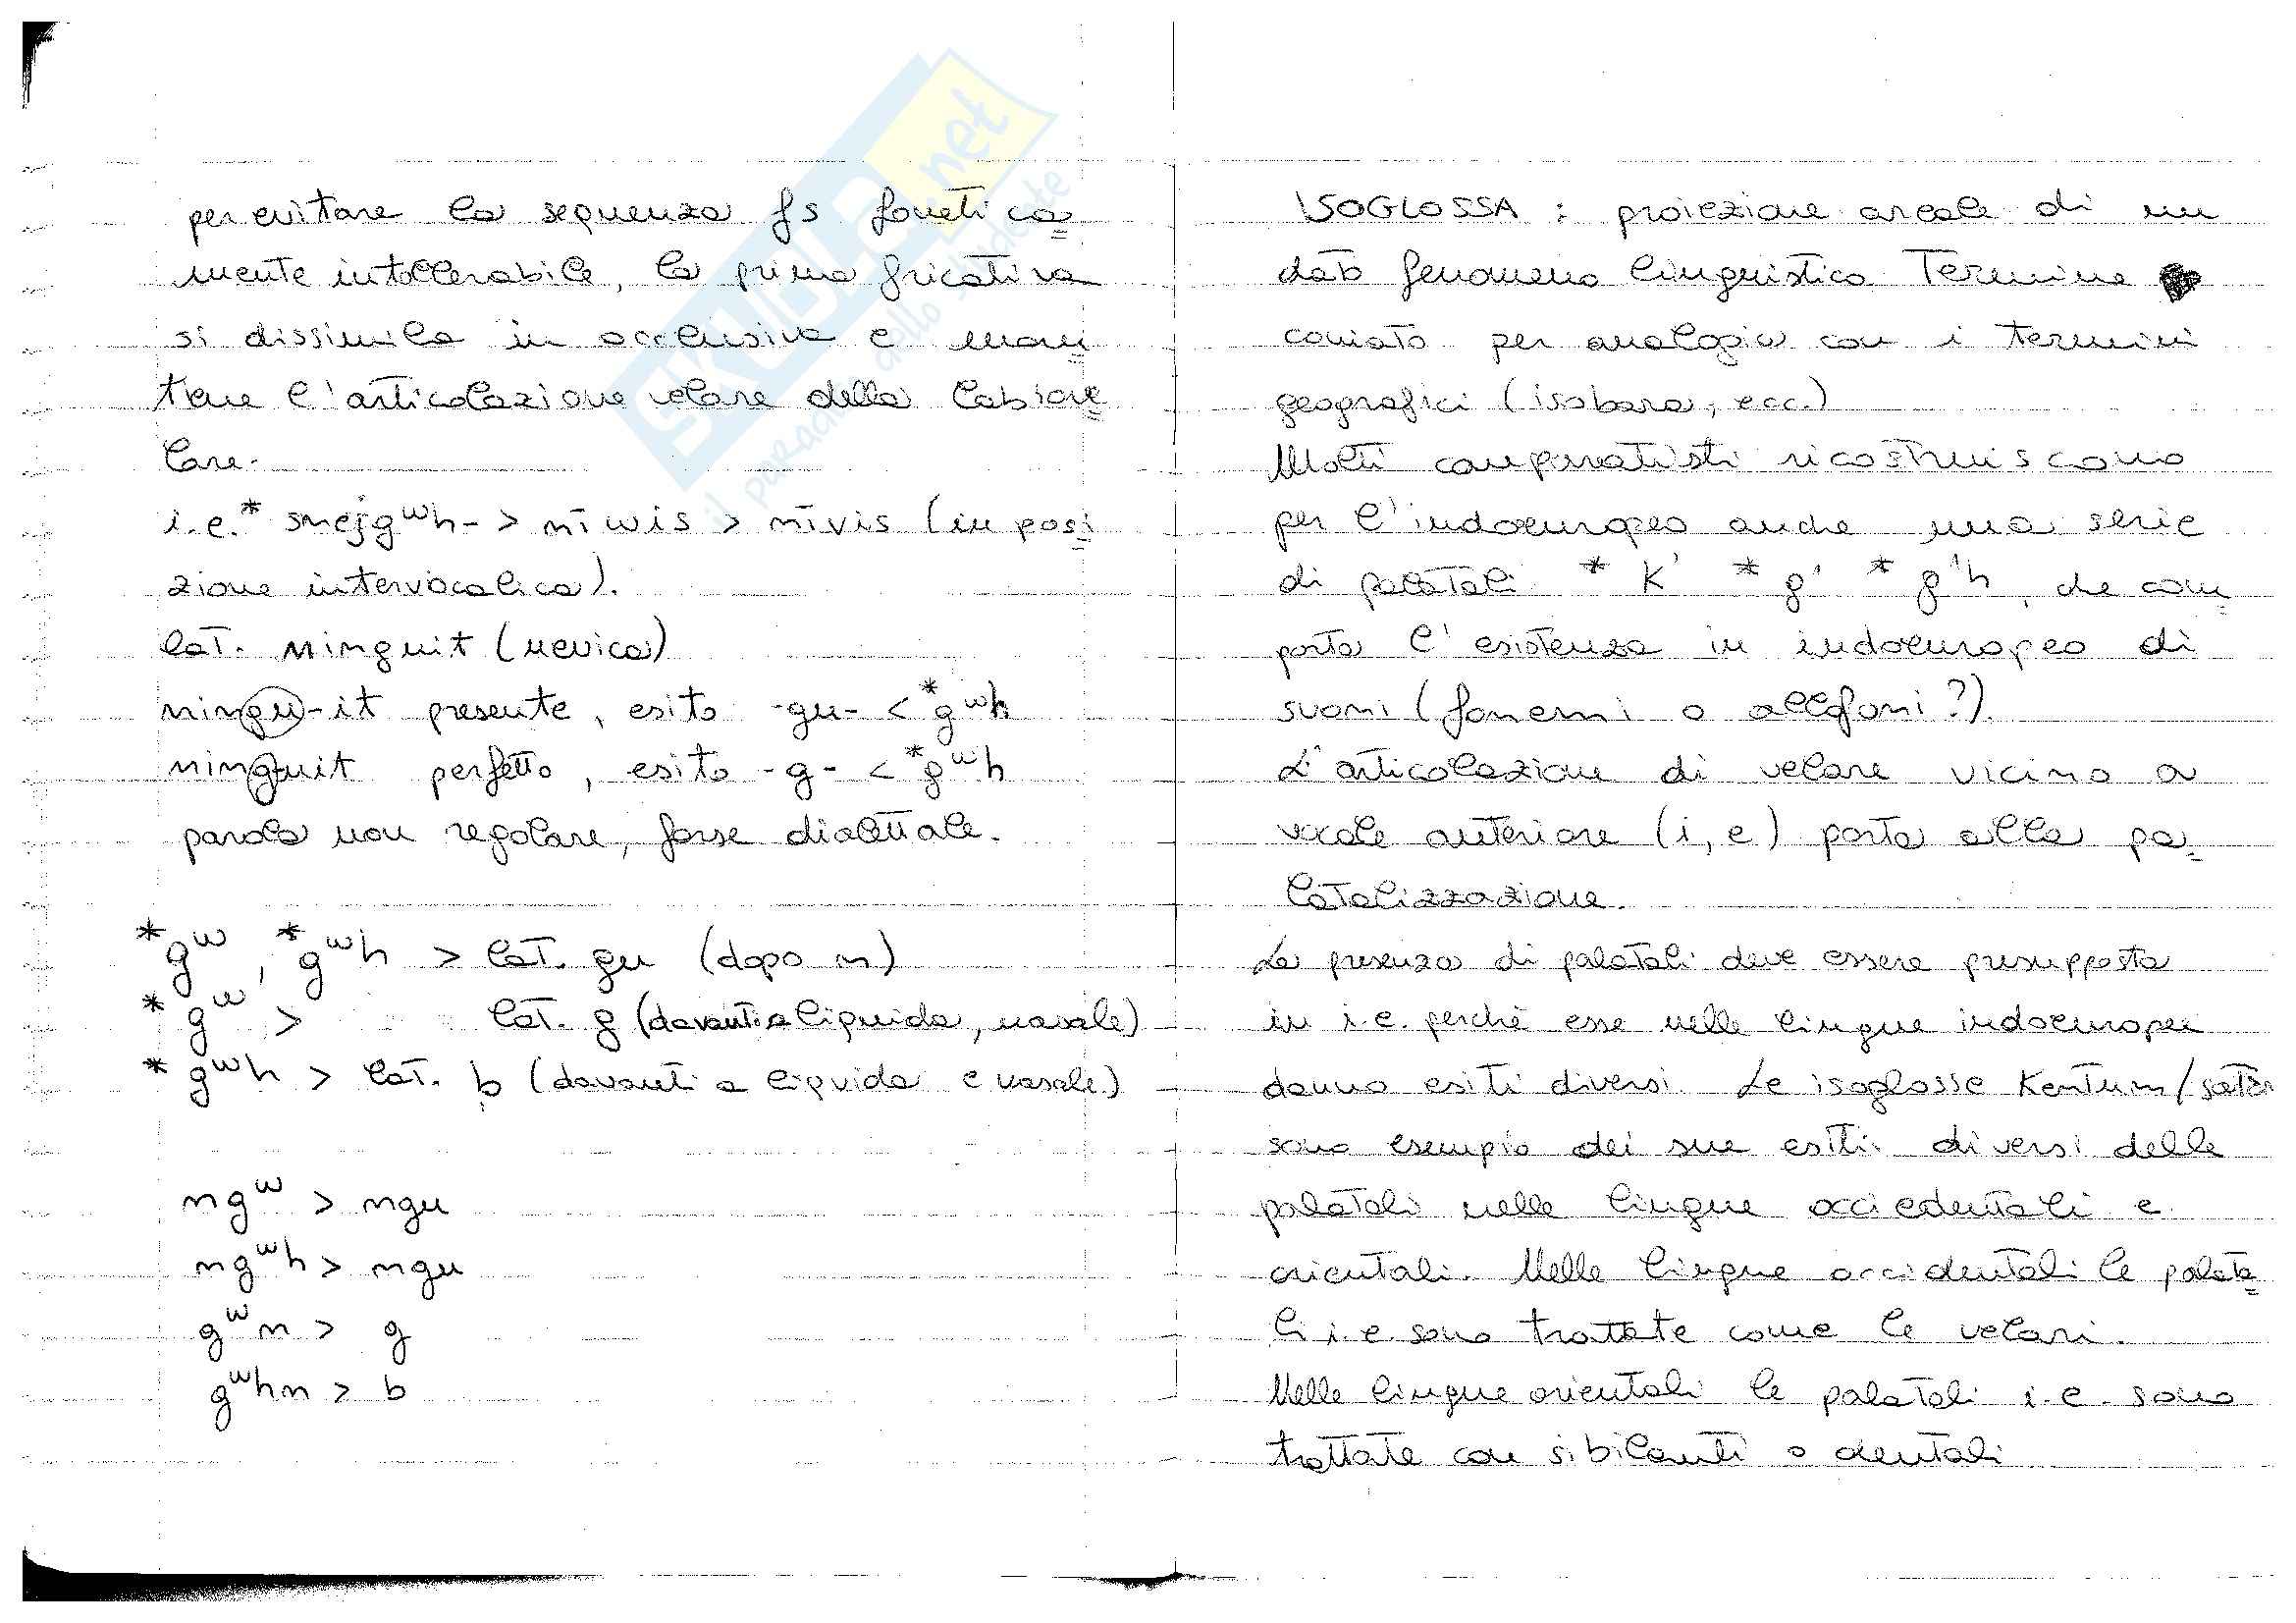 per evitare la sequenza fs fonetica
mente intollerabile, la prima fricativa
si dissimila in occlusiva e man
tiene l'articolazione velare della labiove
lare.
i.e.* snejgʷh- > nīwis > nīvis (in posi
zione intervocalica).
lat. ninguit (nevica)
ningu-it presente, esito -gu- < *gʷh
ninguit perfetto, esito -g- < *gʷh
parola non regolare, forse dialettale.
*gʷ, *gʷh > lat. gu (dopo n)
*gʷ > lat. g (davanti a liquida, nasale)
*gʷh > lat. b (davanti a liquida e nasale)
ngʷ > ngu
ngʷh > ngu
gʷn > g
gʷhn > b
ISOGLOSSA : proiezione areale di un
dato fenomeno linguistico Termine
coniato per analogia con i termini
geografici (isobara, ecc.)
Molti comparatisti ricostruiscono
per l'indoeuropeo anche una serie
di palatali *K' *g' *g'h, che com
porta l'esistenza in indoeuropeo di
suoni (fonemi o allofoni?).
L'articolazione di velare vicino a
vocale anteriore (i, e) porta alla pa
latalizzazione.
La presenza di palatali deve essere presupposta
in i.e. perchè esse nelle lingue indoeuropee
danno esiti diversi. Le isoglosse Kentum/satəm
sono esempio dei sue esiti diversi delle
palatali nelle lingue occiedentali e
orientali. Nelle lingue occidentali le palata
li i.e. sono trattate come le velari.
Nelle lingue orientali le palatali i.e. sono
trattate con sibilanti o dentali
SKUOLA.net
il paradiso dello studente